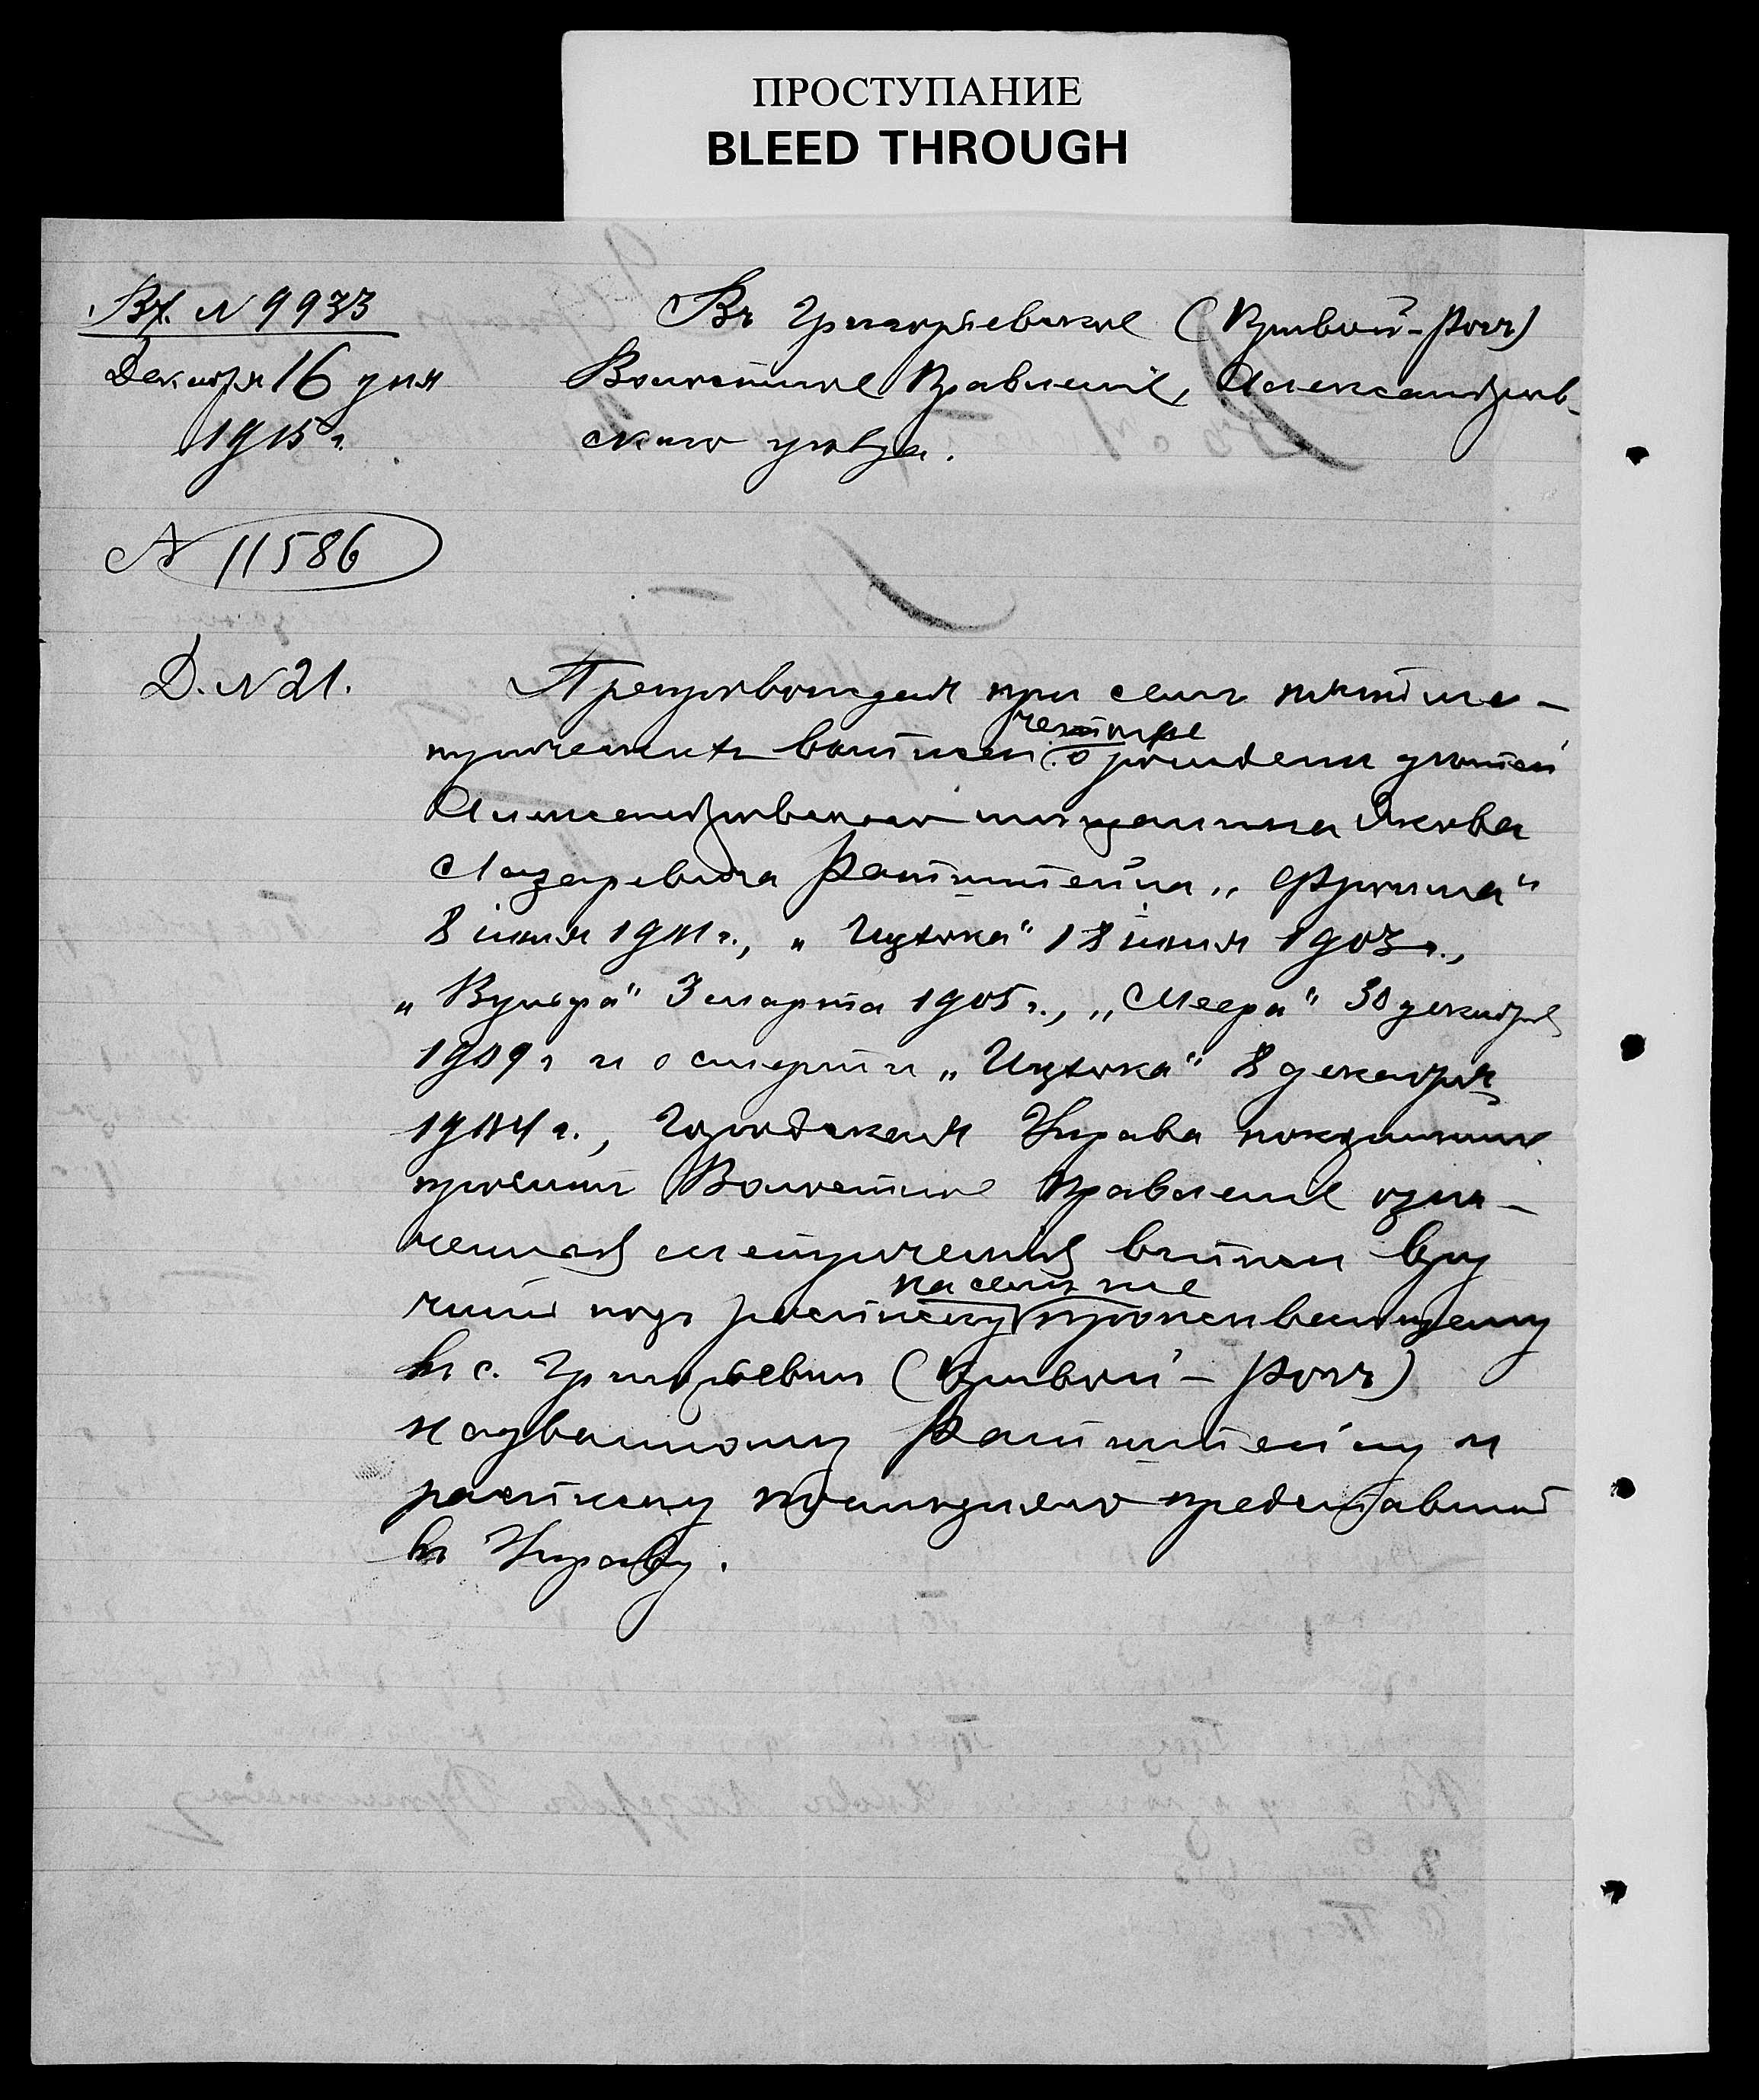 ПРОСТУПАНИЕ
BLEED THROUGH
Вх. N 9933
Декабря 16 дня
1915 г.
N 11586
Д. N 21.
Въ Григорьевское (Кривой-Рогъ)
Волостное Правленіе, Александров-
скаго уѣзда.
Препровождая при семъ пять ме-
трическихъ выписей: четыре о рожденіи дѣтей
Александровскаго мѣщанина Якова
Лазаревича Ратштейна „Фроима"
8 іюня 1901 г., „Ицхока" 18 іюня 1903 г.,
3 марта 1905 г., „Меера" 30 декабря
1909 г и о смерти „Ицхока" 8 декабря
1904 г., Городская Управа покорнѣйше
проситъ Волостное Правленіе озна-
ченныя метрическія выписи вру
чить подъ росписку на семъ же проживающему
въ с. Григорьевкѣ (Кривой-Рогъ)
названному Ратштейну и
росписку послѣднего представить
въ Управу.